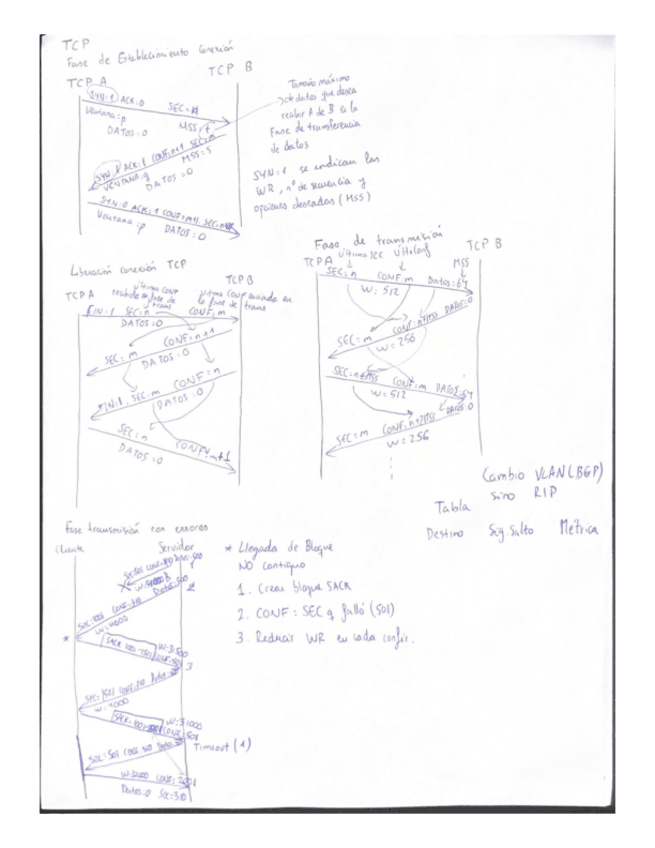 TCP
Fase de Establecimiento conexión
TCP A
TCP B
SYN:1 ACK:0 SEC:n
Ventana:p MSS:t
DATOS:0
SYN:1 ACK:1 CONF:n+1 SEC:m
VENTANA:q MSS:s
DATOS:0
SYN:0 ACK:1 CONF:m+1 SEC:
Ventana:p DATOS:0
Tamaño máximo
de datos que desea
recibir A de B en la
Fase de transferencia
de datos
SYN:1 se indican los
WR, nº de secuencia y
opciones deseadas (MSS)
Liberación conexión TCP
TCP A
TCP B
última conf
recibida en fase de
trans
última conf enviada en
la fase de trans
FIN:1 SEC:n CONF:m
DATOS:0
CONF:n+1
SEC:m DATOS:0
CONF:n
FIN:1 SEC:m DATOS:0
SEC:n CONF:m+1
DATOS:0
Fase de transmisión
TCP A última sec
TCP B
MSS
SEC:n CONF:m Datos:64
W:512
CONF:n+MSS DATOS:0
SEC:m W:256
SEC:n+MSS CONF:m DATOS:64
W:512
CONF:n+2MSS DATOS:0
SEC:m W:256
Cambio VLAN (BGP)
sino RIP
Tabla
Destino Sig. Salto Métrica
Fase transmisión con errores
Cliente
Servidor
W:4000
W:4000
SACK CONF:501
W:3500
3
W:4000
SACK W:3000
CONF:501
Timeout (1)
W:2000 CONF:2001
Datos:0 Sec:310
* Llegada de Bloque
NO contiguo
1. Crear bloque SACK
2. CONF = SEC q falló (501)
3. Reducir WR en cada confir.